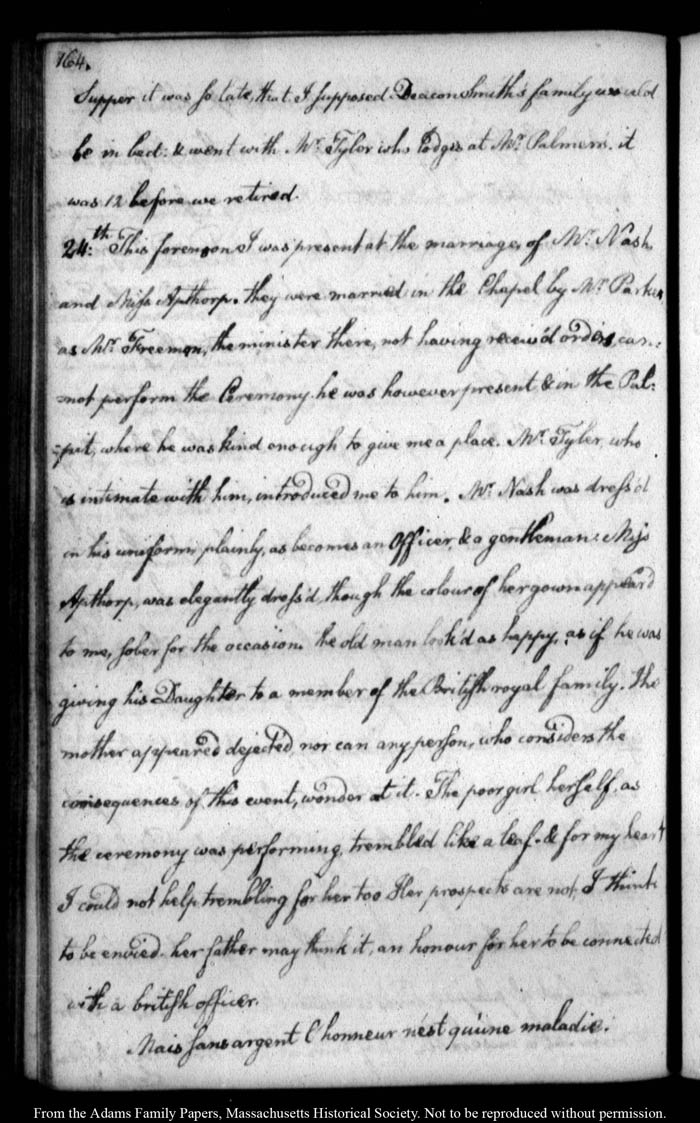 164.
Supper it was so late, that I supposed Deacon Smith's family would
be in bed: & went with Mr. Tyler who lodges at Mr. Palmers. it
was 12 before we retired.
24.th This forenoon I was present at the marriage, of Mr. Nash,
and Miss Apthorp. they were married in the Chapel by Mr. Parker,
as Mr. Freeman, the minister there, not having receiv'd orders, can-
-not perform the Ceremony. he was however present, & in the Pul-
-pit, where he was kind enough to give me a place. Mr. Tyler, who
is intimate with him, introduced me to him. Mr. Nash was dress'd
in his uniform, plainly, as becomes an Officer, & a gentleman: Miss
Apthorp, was elegantly dress'd, though the colour of her gown appeard
to me, sober for the occasion. the old man look'd as happy, as if he was
giving his Daughter to a member of the British royal family. The
mother appeared dejected nor can any person, who considers the
consequences of this event, wonder at it. The poor girl herself, as
the ceremony was performing, trembled like a leaf. & for my heart
I could not help trembling for her too Her prospects are not, I think
to be envied. her father may think it, an honour for her to be connected
with a british officer.
Mais sans argent l'honneur n'est qu'une maladie.
From the Adams Family Papers, Massachusetts Historical Society. Not to be reproduced without permission.